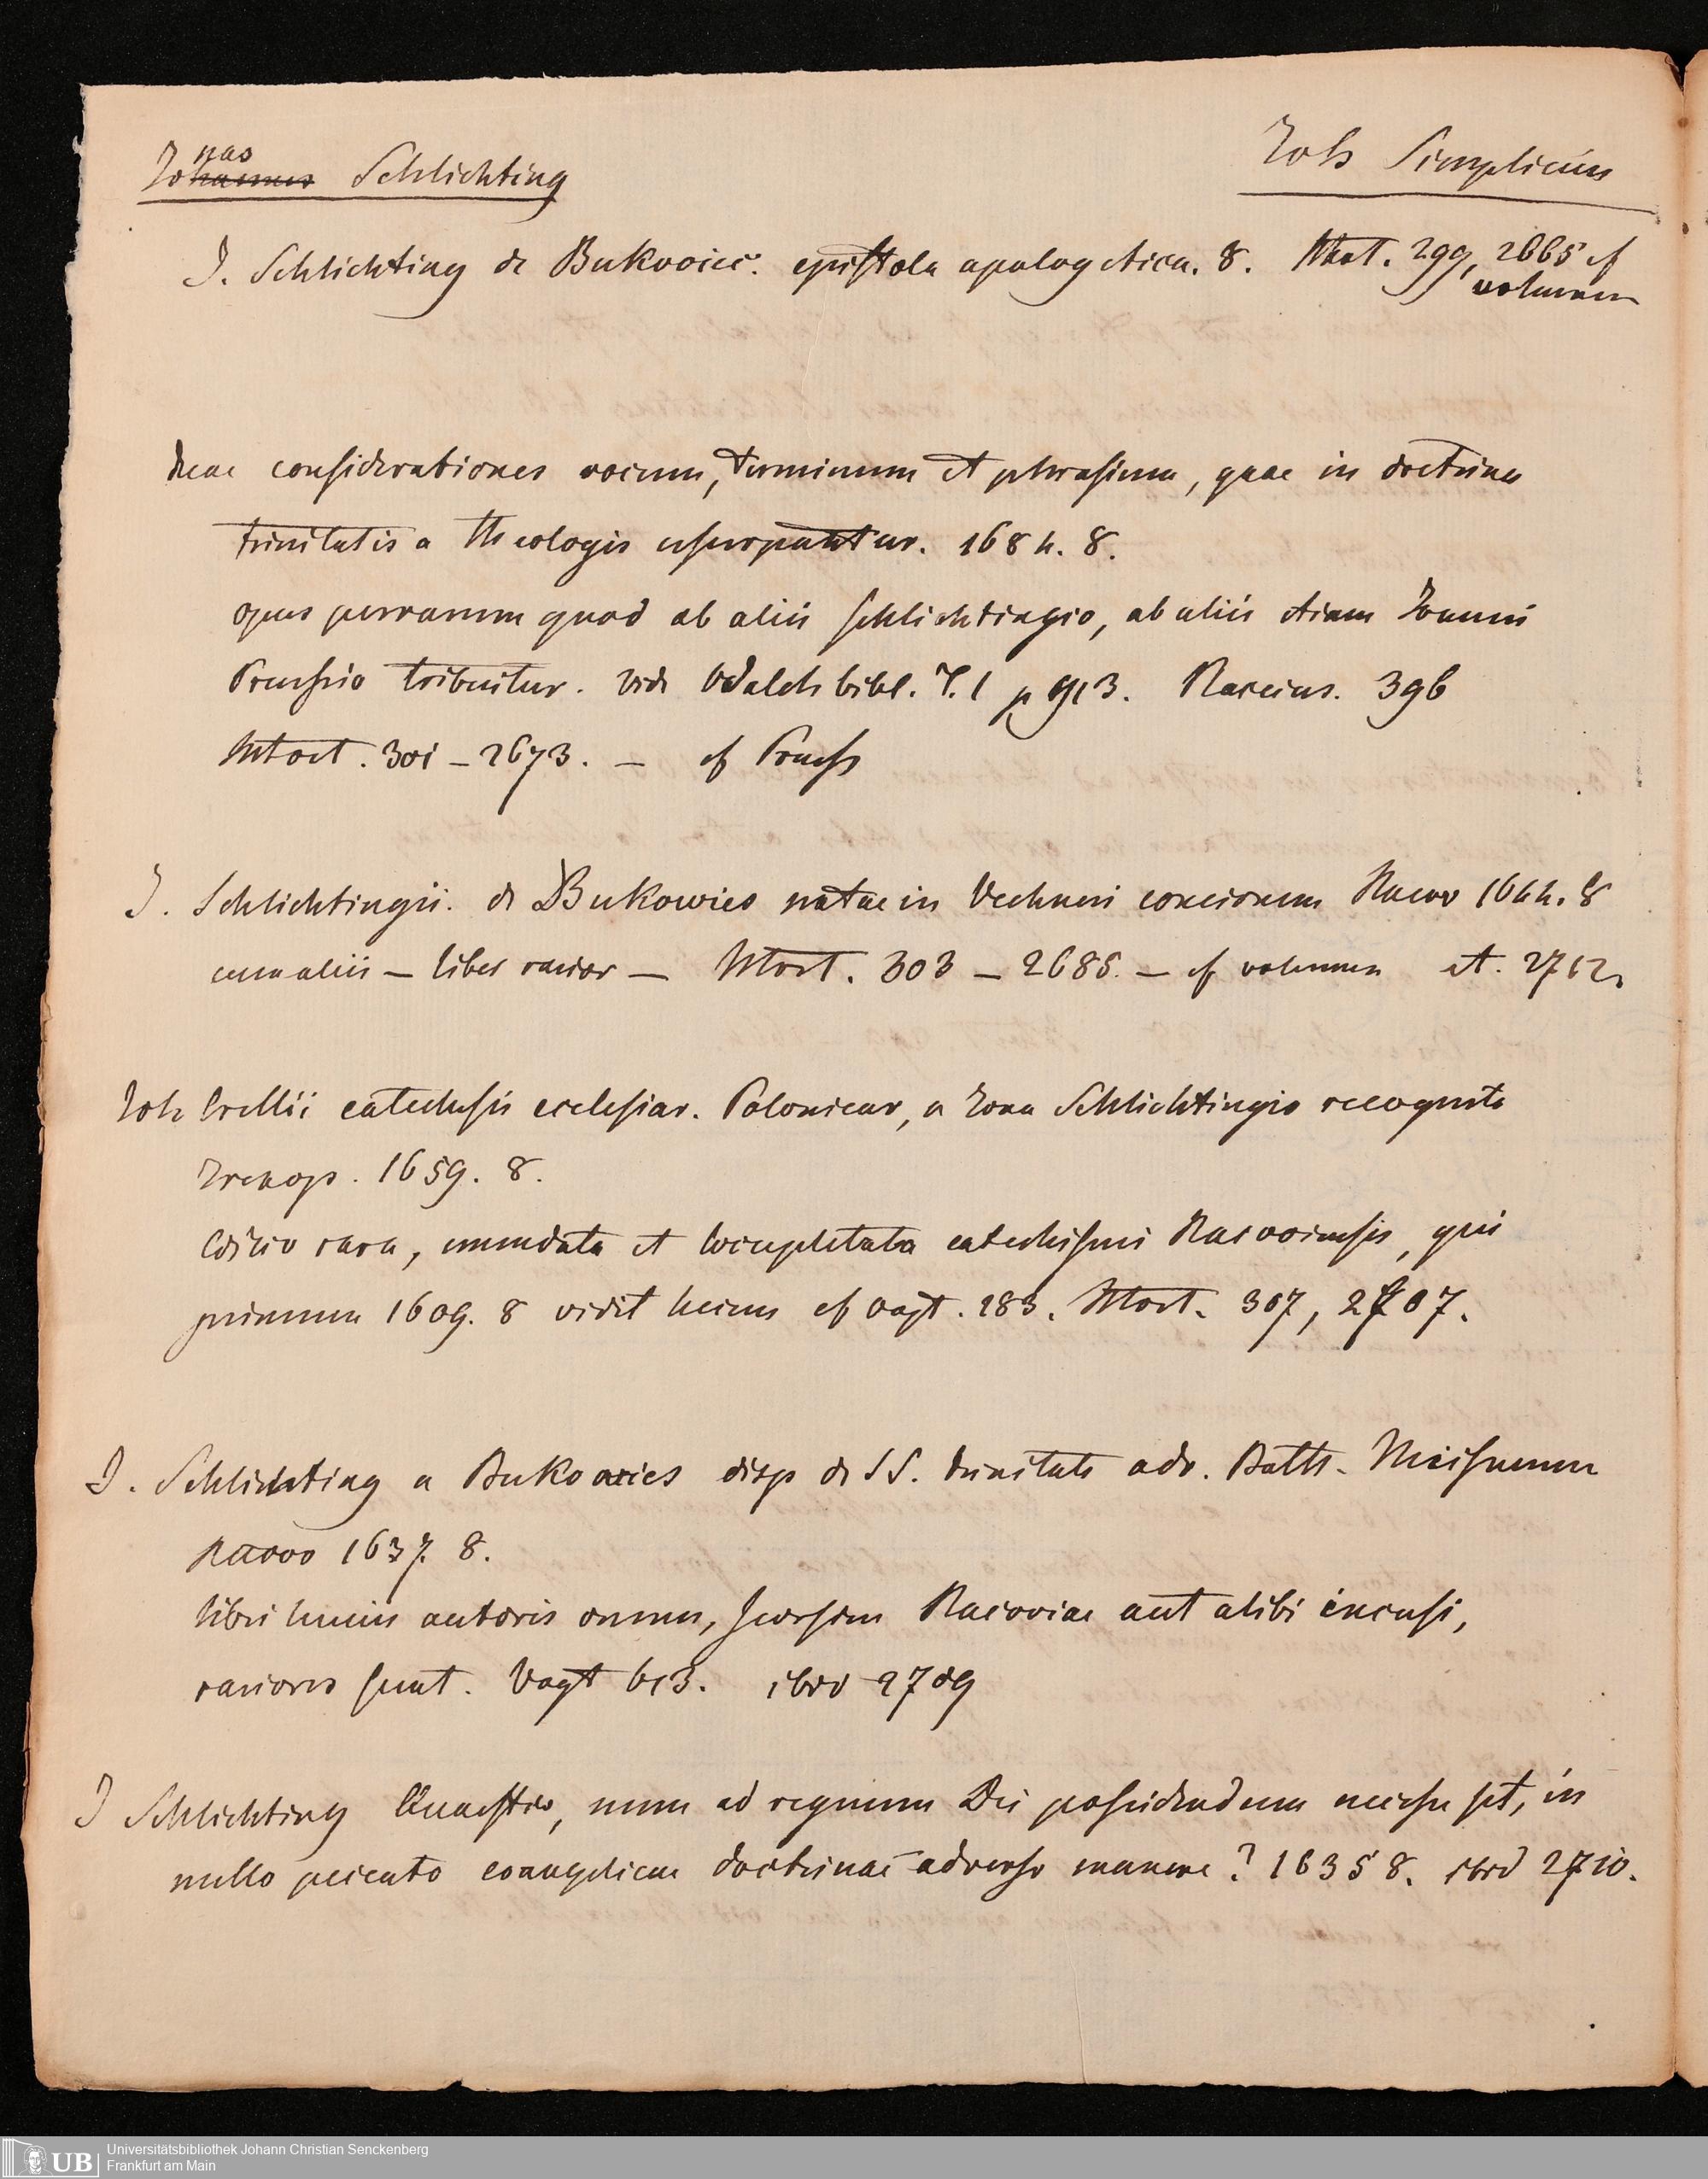 Jonas Schlichting
Joh Simplicius
J. Schlichting de Bukoviec. epistola apologetica. 8. Mort. 299, 2665 cf
volumen
duae considerationes vocum, terminum et phrasium, quae in doctrina
trinitatis a theologis usurpantur. 1684. 8.
opus perrarum quod ab aliis schlichtingio, ab aliis etiam Joanni
Preussio tribuitur. vide Walch bibl. T. 1 p 913. 396
Mort. 301 – 2673. – cf Preuss
J. Schlichtingii. de Bukowiec notae in Vechneri concionem Racov 1644. 8
cum aliis – liber rarior – Mort. 303 – 2685. – cf volumen et. 2762
Joh Crellii catechesis ecclesiar. Polonicar, a Jona Schlichtingio recognita
Irenop. 1659. 8.
Editio rara, emendata et locupletata catechismi Racoviensis, qui
primum 1609. 8 vidit lucem cf Vogt. 283. Mort. 307, 2707.
J. Schlichting a Bukowiec disp de SS. trinitate adv. Balth. Meisnerum
Racov 1637. 8.
libri huius autoris omnes, seorsim Racoviae aut alibi excusi,
rariores sunt. Vogt 613. ibid 2709
J Schlichting Quaestio, num ad regnum Dei possidendum necesse sit, in
nullo peccato evangelicae doctrinae adverso manere? 1635 8. ibid 2710.
UB
Universitätsbibliothek Johann Christian Senckenberg
Frankfurt am Main